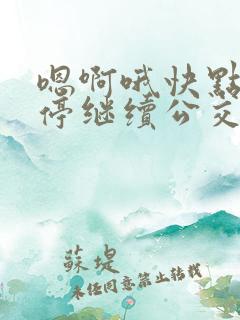 嗯啊哦快點
停继續公交
蘇堤
未经同意禁止转载